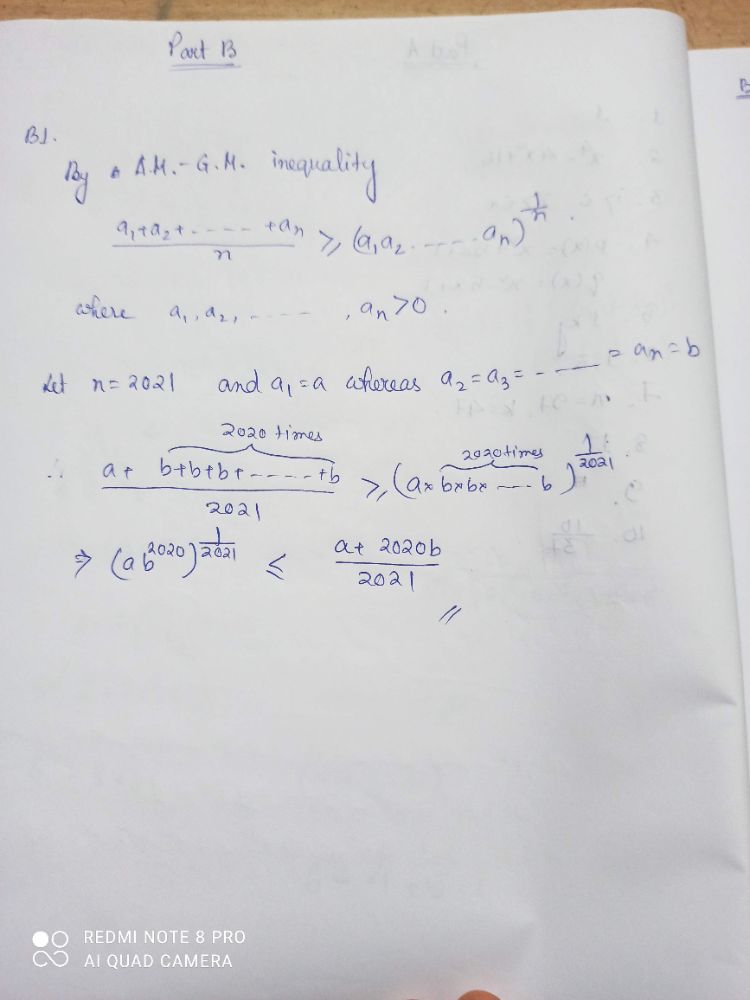 Part B
B1.
By A.M.-G.M. inequality
(a₁+a₂+.....+aₙ)/n ⩾ (a₁a₂.....aₙ)^(1/n).
where a₁, a₂, ....., aₙ>0.
Let n=2021 and a₁=a whereas a₂=a₃=-----=aₙ=b
2020 times 2020 times
∴ (a+b+b+b+.....+b)/2021 ⩾ (a×b×b×....b)^(1/2021).
⇒ (ab^2020)^(1/2021) ≤ (a+2020b)/2021
//
REDMI NOTE 8 PRO
AI QUAD CAMERA